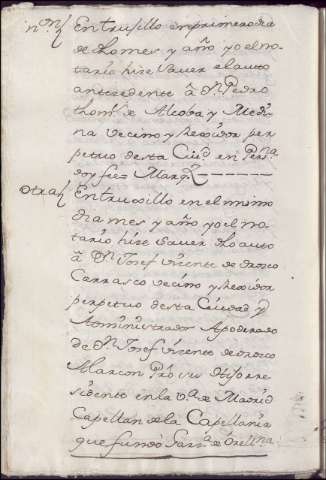 n.on En truxillo en primero dia
de dho mes y año yo el no-
tario hize saver el auto
antezedente a Dn. Pedro
thom.s de Alcoba y Medi-
na vecino y rexidor per-
petuo desta Ciud. en Pers.na
doy fee Marq.z
Otra En truxillo en el mismo
dia mes y año yo el no-
tario hize saver dho auto
a Dn. Josef Vicente de Orozco
Carrasco vecino y rexidor
perpetuo desta Ciudad y
Administrador Apoderado
de Dn. Josef Vicente de Orozco
Alarcon Pro su hijo re-
sidente en la V.a de Madrid
Capellan de la Capellania
que fundó de Orellana.